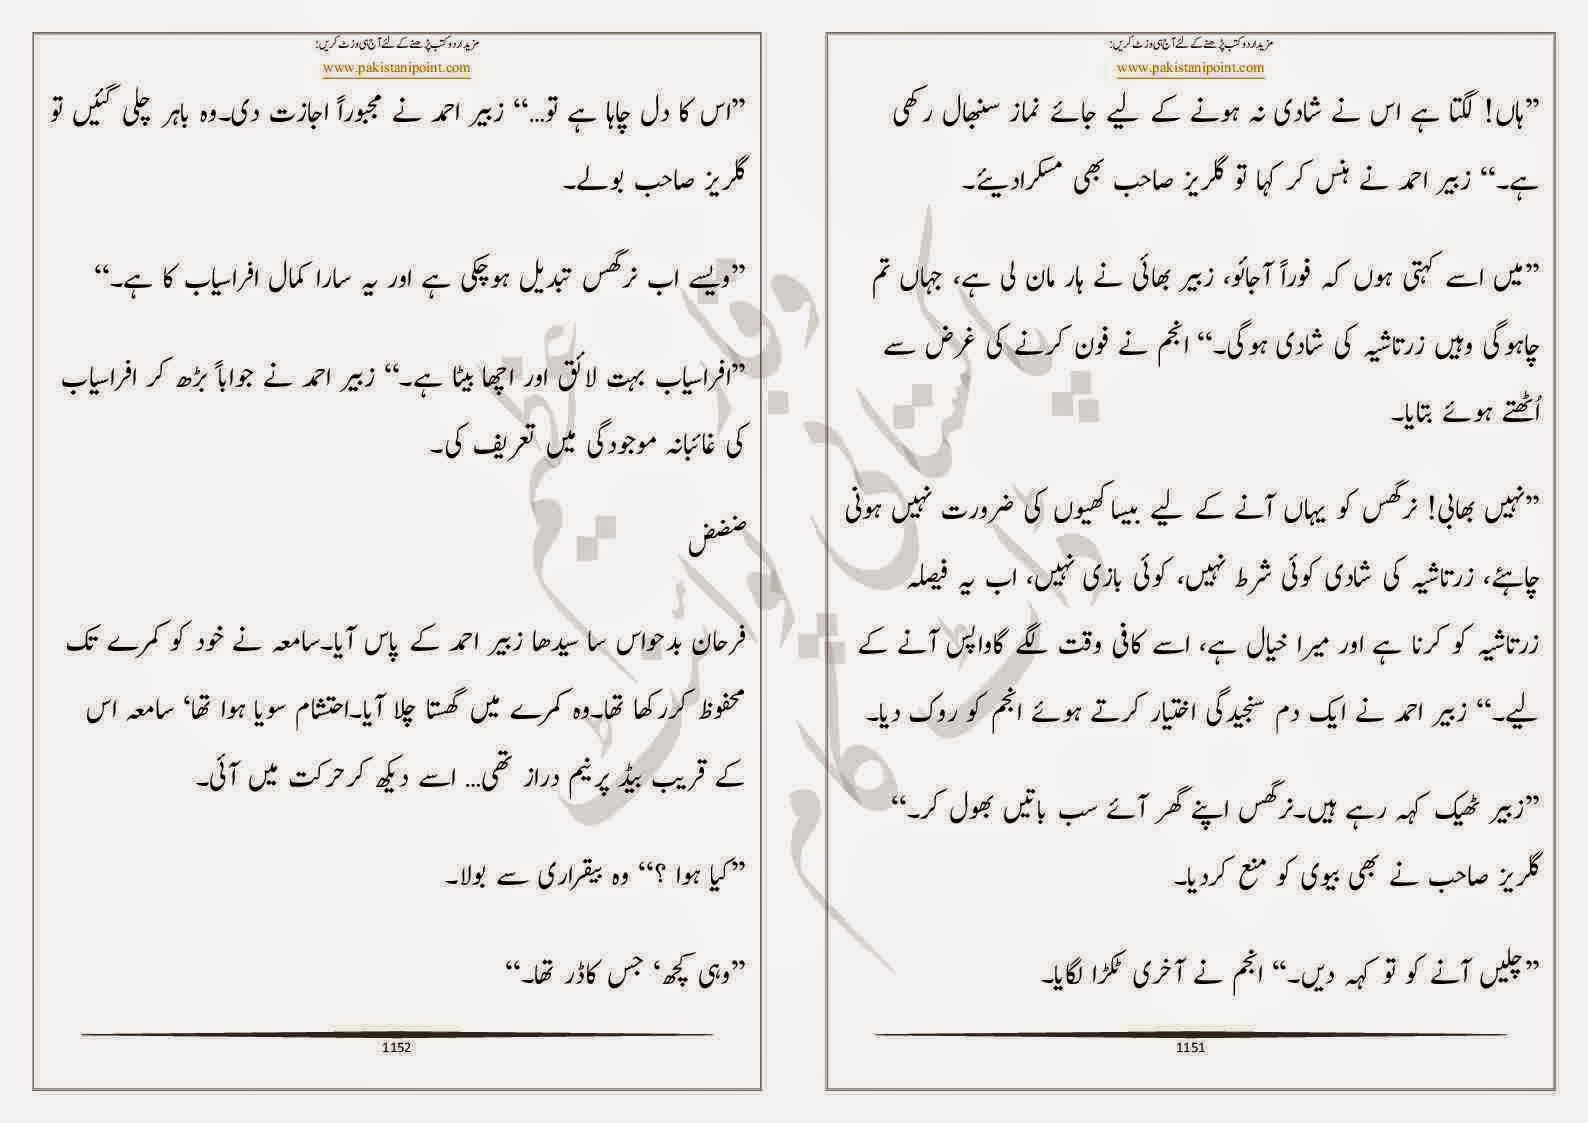 مزید اردو کتب پڑھنے کے لئے آج ہی وزٹ کریں:
www.pakistanipoint.com
”ہاں! لگتا ہے اس نے شادی نہ ہونے کے لیے جائے نماز سنبھال رکھی
ہے۔“ زبیر احمد نے ہنس کر کہا تو گلریز صاحب بھی مسکرادیئے۔
”میں اسے کہتی ہوں کہ فوراً آجائو، زبیر بھائی نے ہار مان لی ہے، جہاں تم
چاہوگی وہیں زرتاشیہ کی شادی ہوگی۔“ انجم نے فون کرنے کی غرض سے
اُٹھتے ہوئے بتایا۔
”نہیں بھابی! نرگھس کو یہاں آنے کے لیے بیساکھیوں کی ضرورت نہیں ہونی
چاہئے، زرتاشیہ کی شادی کوئی شرط نہیں، کوئی بازی نہیں، اب یہ فیصلہ
زرتاشیہ کو کرنا ہے اور میرا خیال ہے، اسے کافی وقت لگے گاواپس آنے کے
لیے۔“ زبیر احمد نے ایک دم سنجیدگی اختیار کرتے ہوئے انجم کو روک دیا۔
”زبیر ٹھیک کہہ رہے ہیں۔نرگھس اپنے گھر آئے سب باتیں بھول کر۔“
گلریز صاحب نے بھی بیوی کو منع کردیا۔
”چلیں آنے کو تو کہہ دیں۔“ انجم نے آخری ٹکڑا لگایا۔
1151
مزید اردو کتب پڑھنے کے لئے آج ہی وزٹ کریں:
www.pakistanipoint.com
”اس کا دل چاہا ہے تو...“ زبیر احمد نے مجبوراً اجازت دی۔وہ باہر چلی گئیں تو
گلریز صاحب بولے۔
”ویسے اب نرگھس تبدیل ہوچکی ہے اور یہ سارا کمال افراسیاب کا ہے۔“
”افراسیاب بہت لائق اور اچھا بیٹا ہے۔“ زبیر احمد نے جواباً بڑھ کر افراسیاب
کی غائبانہ موجودگی میں تعریف کی۔
ضضض
فرحان بدحواس سا سیدھا زبیر احمد کے پاس آیا۔سامعہ نے خود کو کمرے تک
محفوظ کررکھا تھا۔وہ کمرے میں گھستا چلا آیا۔احتشام سویا ہوا تھا‘ سامعہ اس
کے قریب بیڈ پرنیم دراز تھی... اسے دیکھ کرحرکت میں آئی۔
”کیا ہوا ؟“ وہ بیقراری سے بولا۔
”وہی کچھ‘ جس کاڈر تھا۔“
1152
پاکستانی پوائنٹ ڈاٹ کام
وقار عظیم